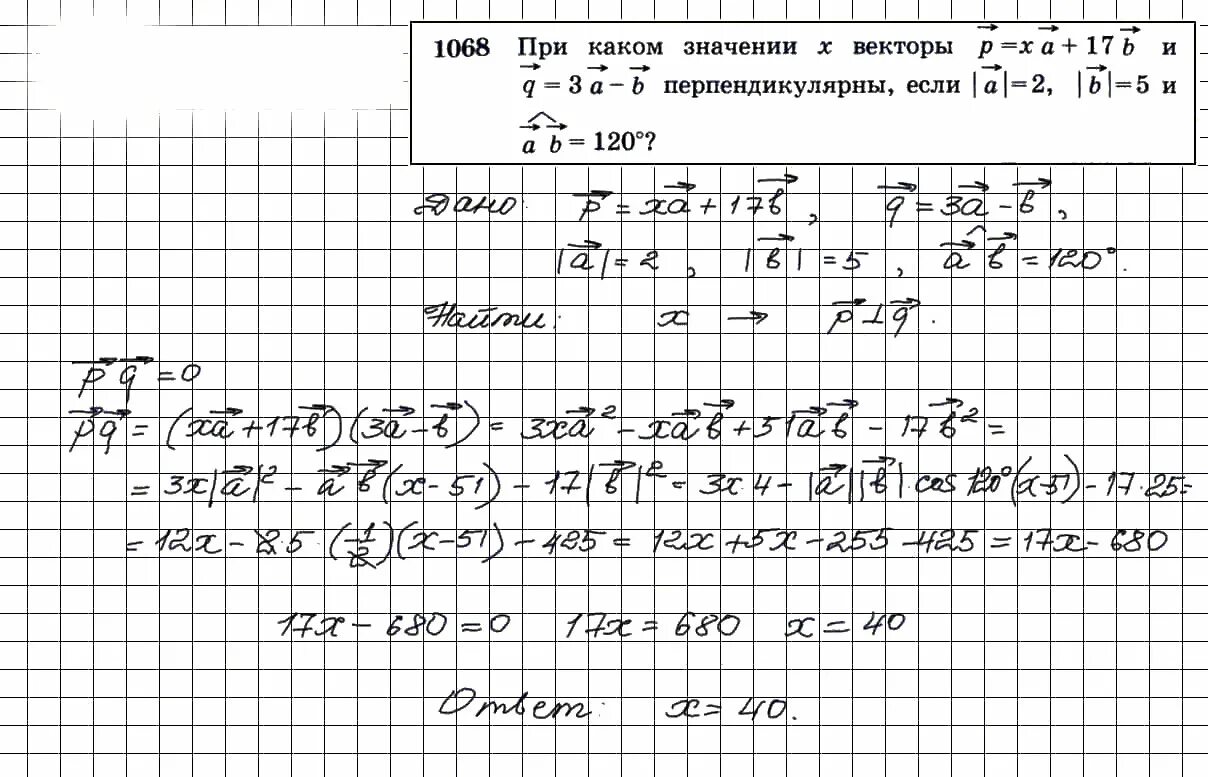 1068 При каком значении x векторы p⃗ = x a⃗ + 17 b⃗ и
q⃗ = 3 a⃗ − b⃗ перпендикулярны, если |a⃗| = 2, |b⃗| = 5 и
a⃗ b⃗ = 120°?
Дано: p⃗ = xa⃗ + 17b⃗, q⃗ = 3a⃗ − b⃗,
|a⃗| = 2, |b⃗| = 5, a⃗ b⃗ = 120°.
Найти: x → p⃗ ⊥ q⃗.
p⃗ q⃗ = 0
p⃗q⃗ = (xa⃗ + 17b⃗)(3a⃗ − b⃗) = 3xa⃗² − xa⃗ b⃗ + 51a⃗ b⃗ − 17b⃗² =
= 3x|a⃗|² − a⃗ b⃗(x − 51) − 17|b⃗|² = 3x·4 − |a⃗||b⃗|·cos 120°(x−51) − 17·25 =
= 12x − 2·5·(−1/2)(x − 51) − 425 = 12x + 5x − 255 − 425 = 17x − 680
17x − 680 = 0 17x = 680 x = 40
Ответ: x = 40.